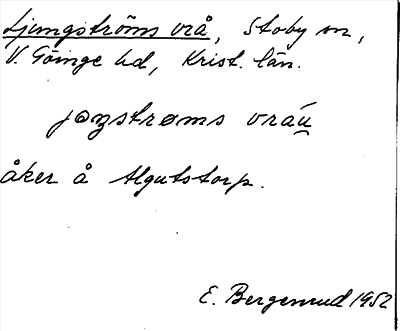 Ljungströms vrå, Stoby sn,
V. Göinge hd, Krist. län.
jɷŋstrøms vráu̯
åker å Algutstorp.
E. Bergenrud 1952